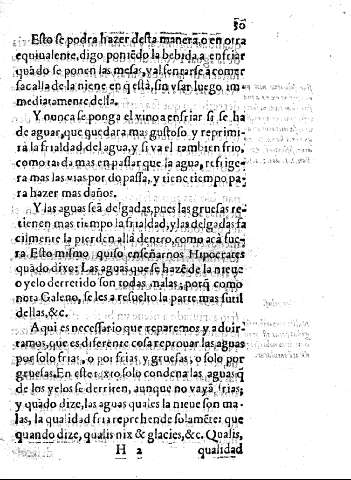 50
Esto se podra hazer desta manera, o en otra
equiualente, digo poniẽdo la bebida a enfriar
quãdo se ponen las mesas, y al sentarse a comer
sacalla de la nieue en q̃ està, sin vsar luego im
mediatamente della.
Y nunca se ponga el vino a enfriar si se ha
de aguar, que quedara mas gustoso, y reprimi-
rà la frialdad del agua, y si va el tambien frio,
como tarda mas en passar que la agua, refrige-
ra mas las vias por do passa, y tiene tiempo pa-
ra hazer mas daños.
Y las aguas seã delgadas, pues las gruesas re-
tienen mas tiempo la frialdad, y las delgadas fa
cilmente la pierden allà dentro, como acà fue-
ra. Esto mismo quiso enseñarnos Hipocrates
quãdo dixo: Las aguas que se hazẽ de la nieue
o yelo derretido son todas malas; porq̃ como
nota Galeno, se les a resuelto la parte mas sutil
dellas, &c.
Aqui es necessario que reparemos y aduir-
tamos, que es diferente cosa reprouar las aguas
por solo frias, o por frias y gruesas, o solo por
gruesas. En este texto solo condena las aguas q̃
de los yelos se derriten, aunque no vayã frias,
y quãdo dize, las aguas quales la nieue son ma-
las, la qualidad fria reprehende solamẽte: que
quando dize, qualis nix & glacies, &c. Qualis,
H 2 qualidad